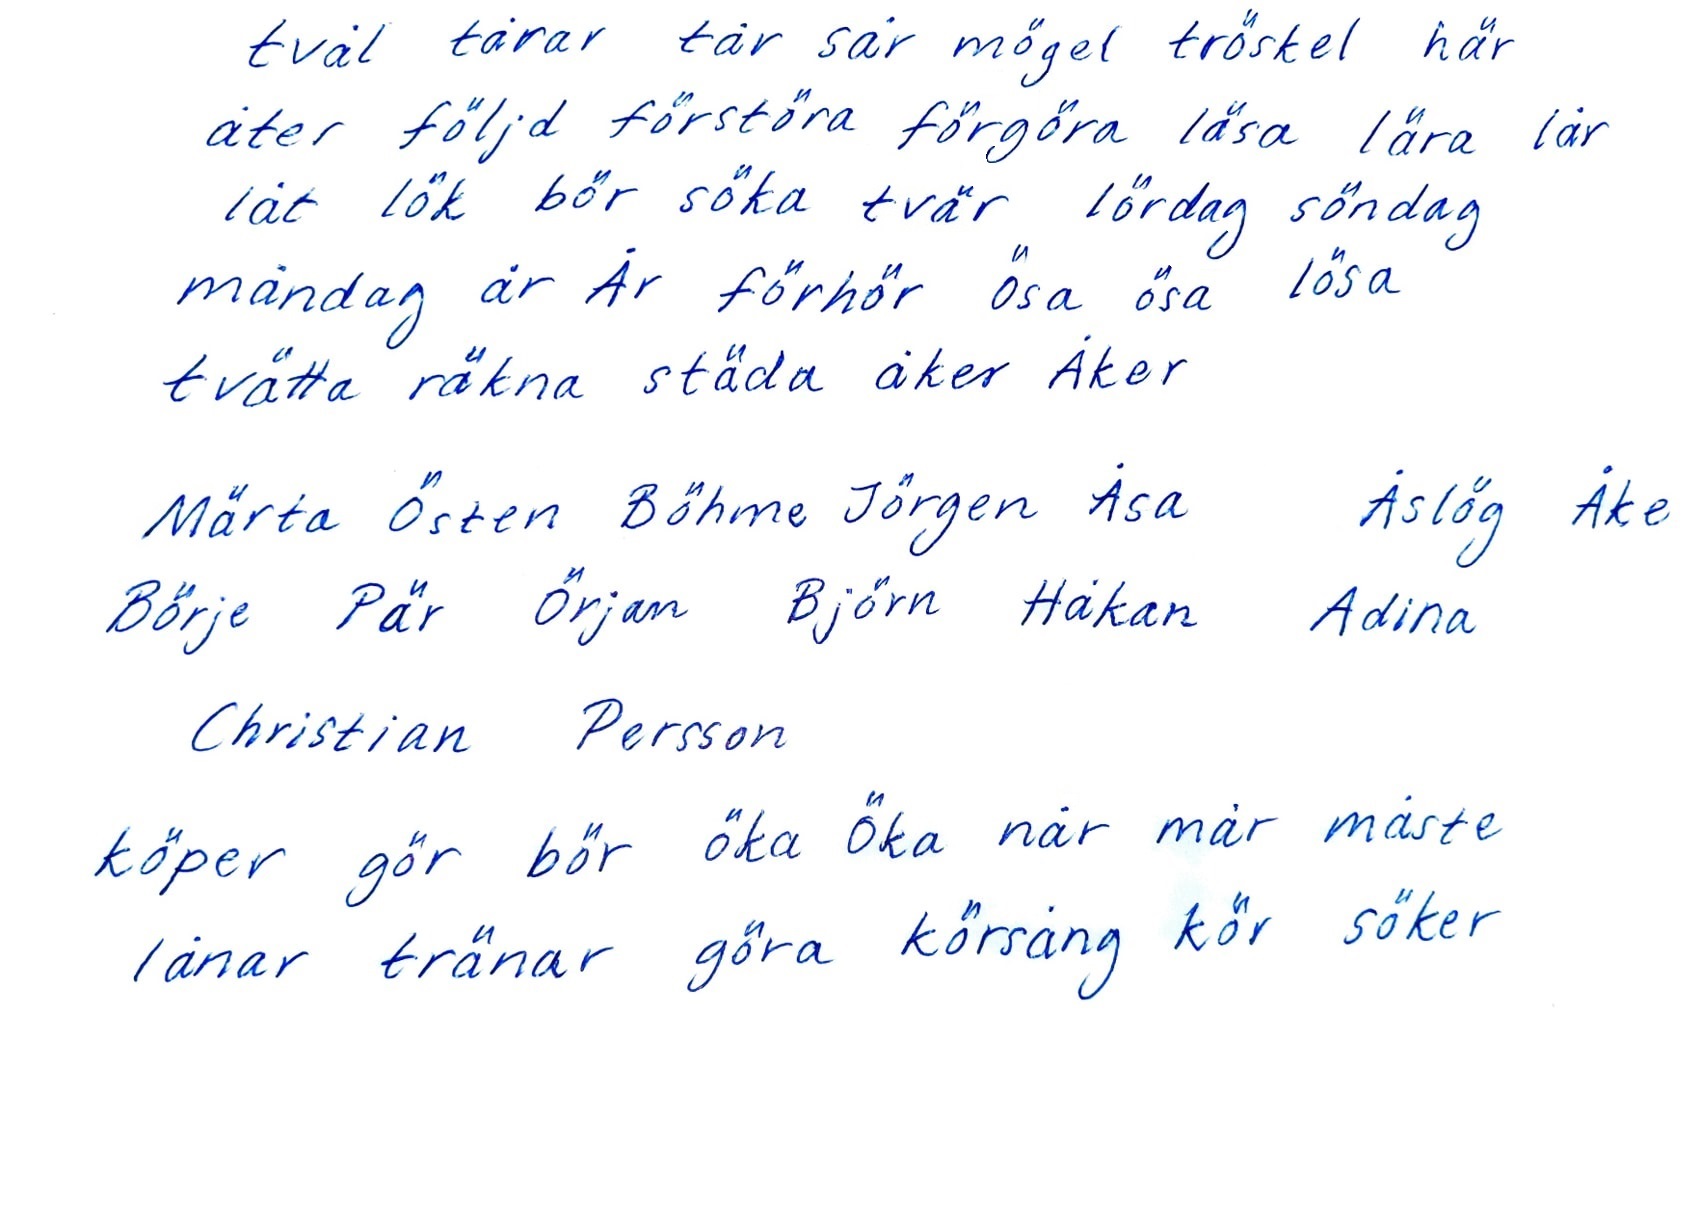 tvål tårar tår sår mögel tröskel här
åter följd förstöra förgöra läsa lära lår
låt lök bör söka tvär lördag söndag
måndag år År förhör Ösa ösa lösa
tvätta räkna städa åker Åker
Märta Östen Böhme Jörgen Åsa Åslög Åke
Börje Pär Örjan Björn Håkan Adina
Christian Persson
köper gör bör öka Öka når mår måste
lånar tränar göra körsång kör söker